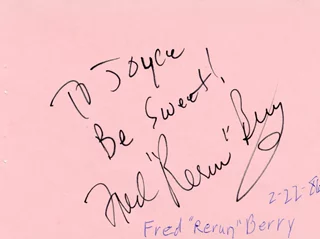 To Joyce
Be Sweet!
Fred "Rerun" Berry
2-22-86
Fred "Rerun" Berry